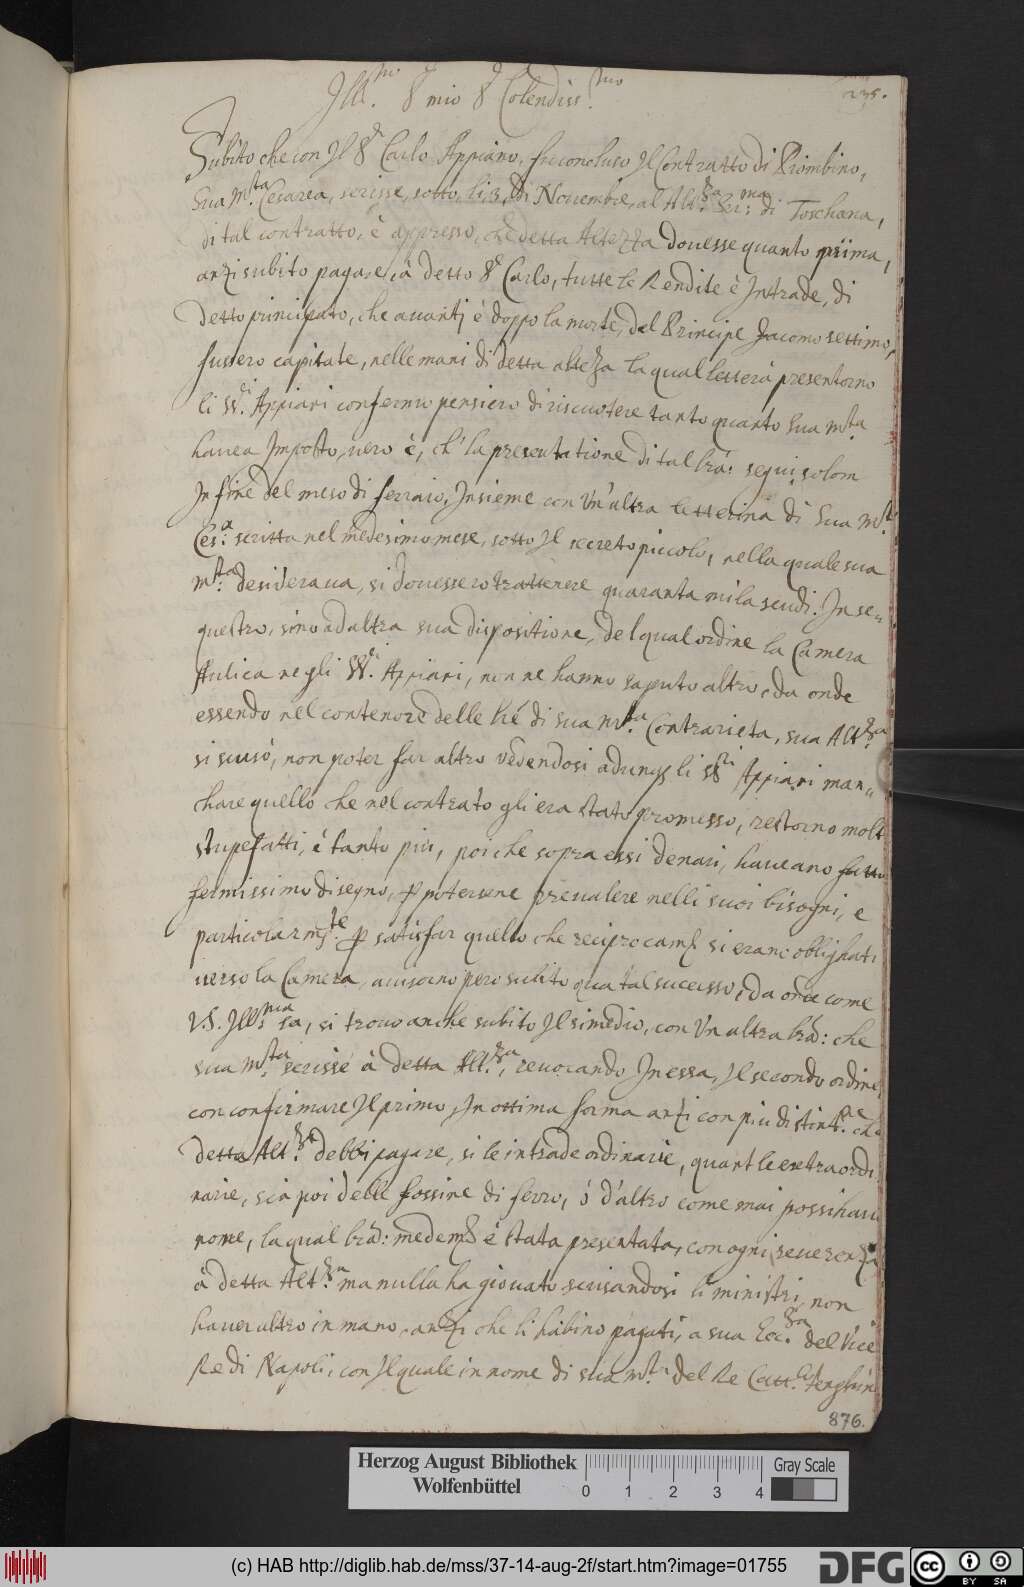 Ill.mo Sr mio Sr Colendiss.mo
235.
Subito che con Il Sr Carlo Appiano, fu concluso Il Contratto di Piombino,
Sua M.sta Cesarea, scrisse, sotto, li 3, di Novembre, al Alt.za Ser.ma di Toschana,
di tal contratto, è appresso, che detta Altezza douesse quanto prima,
anzi subito pagare, à detto Sr Carlo, tutte le Rendite è Intrade, di
detto principato, che auanti è doppo la morte, del Principe Jacomo settimo,
fussero capitate, nelle mani di detta alteza la qual lettera presentorno
li SS.ri Appiani con fermo pensiero di riscuotere tanto quanto sua m.sta
hauea Imposto, uero è, ch' la presentatione di tal lrã: seguì solom
In fine del mese di ferraio, Insieme con Un'altra letterina di Sua M.stà
Ces.a scritta nel medesimo mese, sotto Il secreto piccolo, nella quale sua
m.sta desideraua, si douessero trattenere quaranta mila scudi. In se„
questro, sino ad altra sua dispositione, del qual ordine la Camera
Aulica ne gli SS.ri Appiani, non ne hanno saputo altro, da onde
essendo nel contenore delle lre di sua m.sta Contrarieta, sua Alt.za
si scusò, non poter far altro vedendosi adunqs li SS.ri Appiani man„
chare quello che nel contrato gli era stato promesso, restorno molt
stupefatti, è tanto piu, poi che sopra essi denari, haueano fatto
fermissimo disegno, p potersene preualere nelli suoi bisogni, e
particolarm.te p satisfar quello che reciprocamt si erano oblighati
uerso la Camera, auisorno pero subito qua tal sucesso, da onde come
V.S. Ill.ma sa, si trouo anche subito Il rimedio, con Un altra lrã: che
sua m.sta scrisse à detta Alt.za, reuocando In essa, Il secondo ordine,
con confirmare Il primo, In ottima forma anzi con piu distint.ne che
detta Alt.za debbi pagare, si le intrade ordinarie, quant le extraordi
narie, sia poi delle fossine di ferro, ó d'altro come mai possi hauer
nome, la qual lrã: medemã è stata presentata, con ogni reuerenza
à detta Alt.za ma nulla ha giouato scusandosi li ministri, non
hauer altro in mano, anzi che li habino pagati, a sua Ecc.za del Vice
Re di Napoli, con Il quale in nome di sua m.sta del Re Catt.co
876.
Herzog August Bibliothek
Wolfenbüttel
0 1 2 3 4
Gray Scale
(c) HAB http://diglib.hab.de/mss/37-14-aug-2f/start.htm?image=01755
DFG
cc BY SA